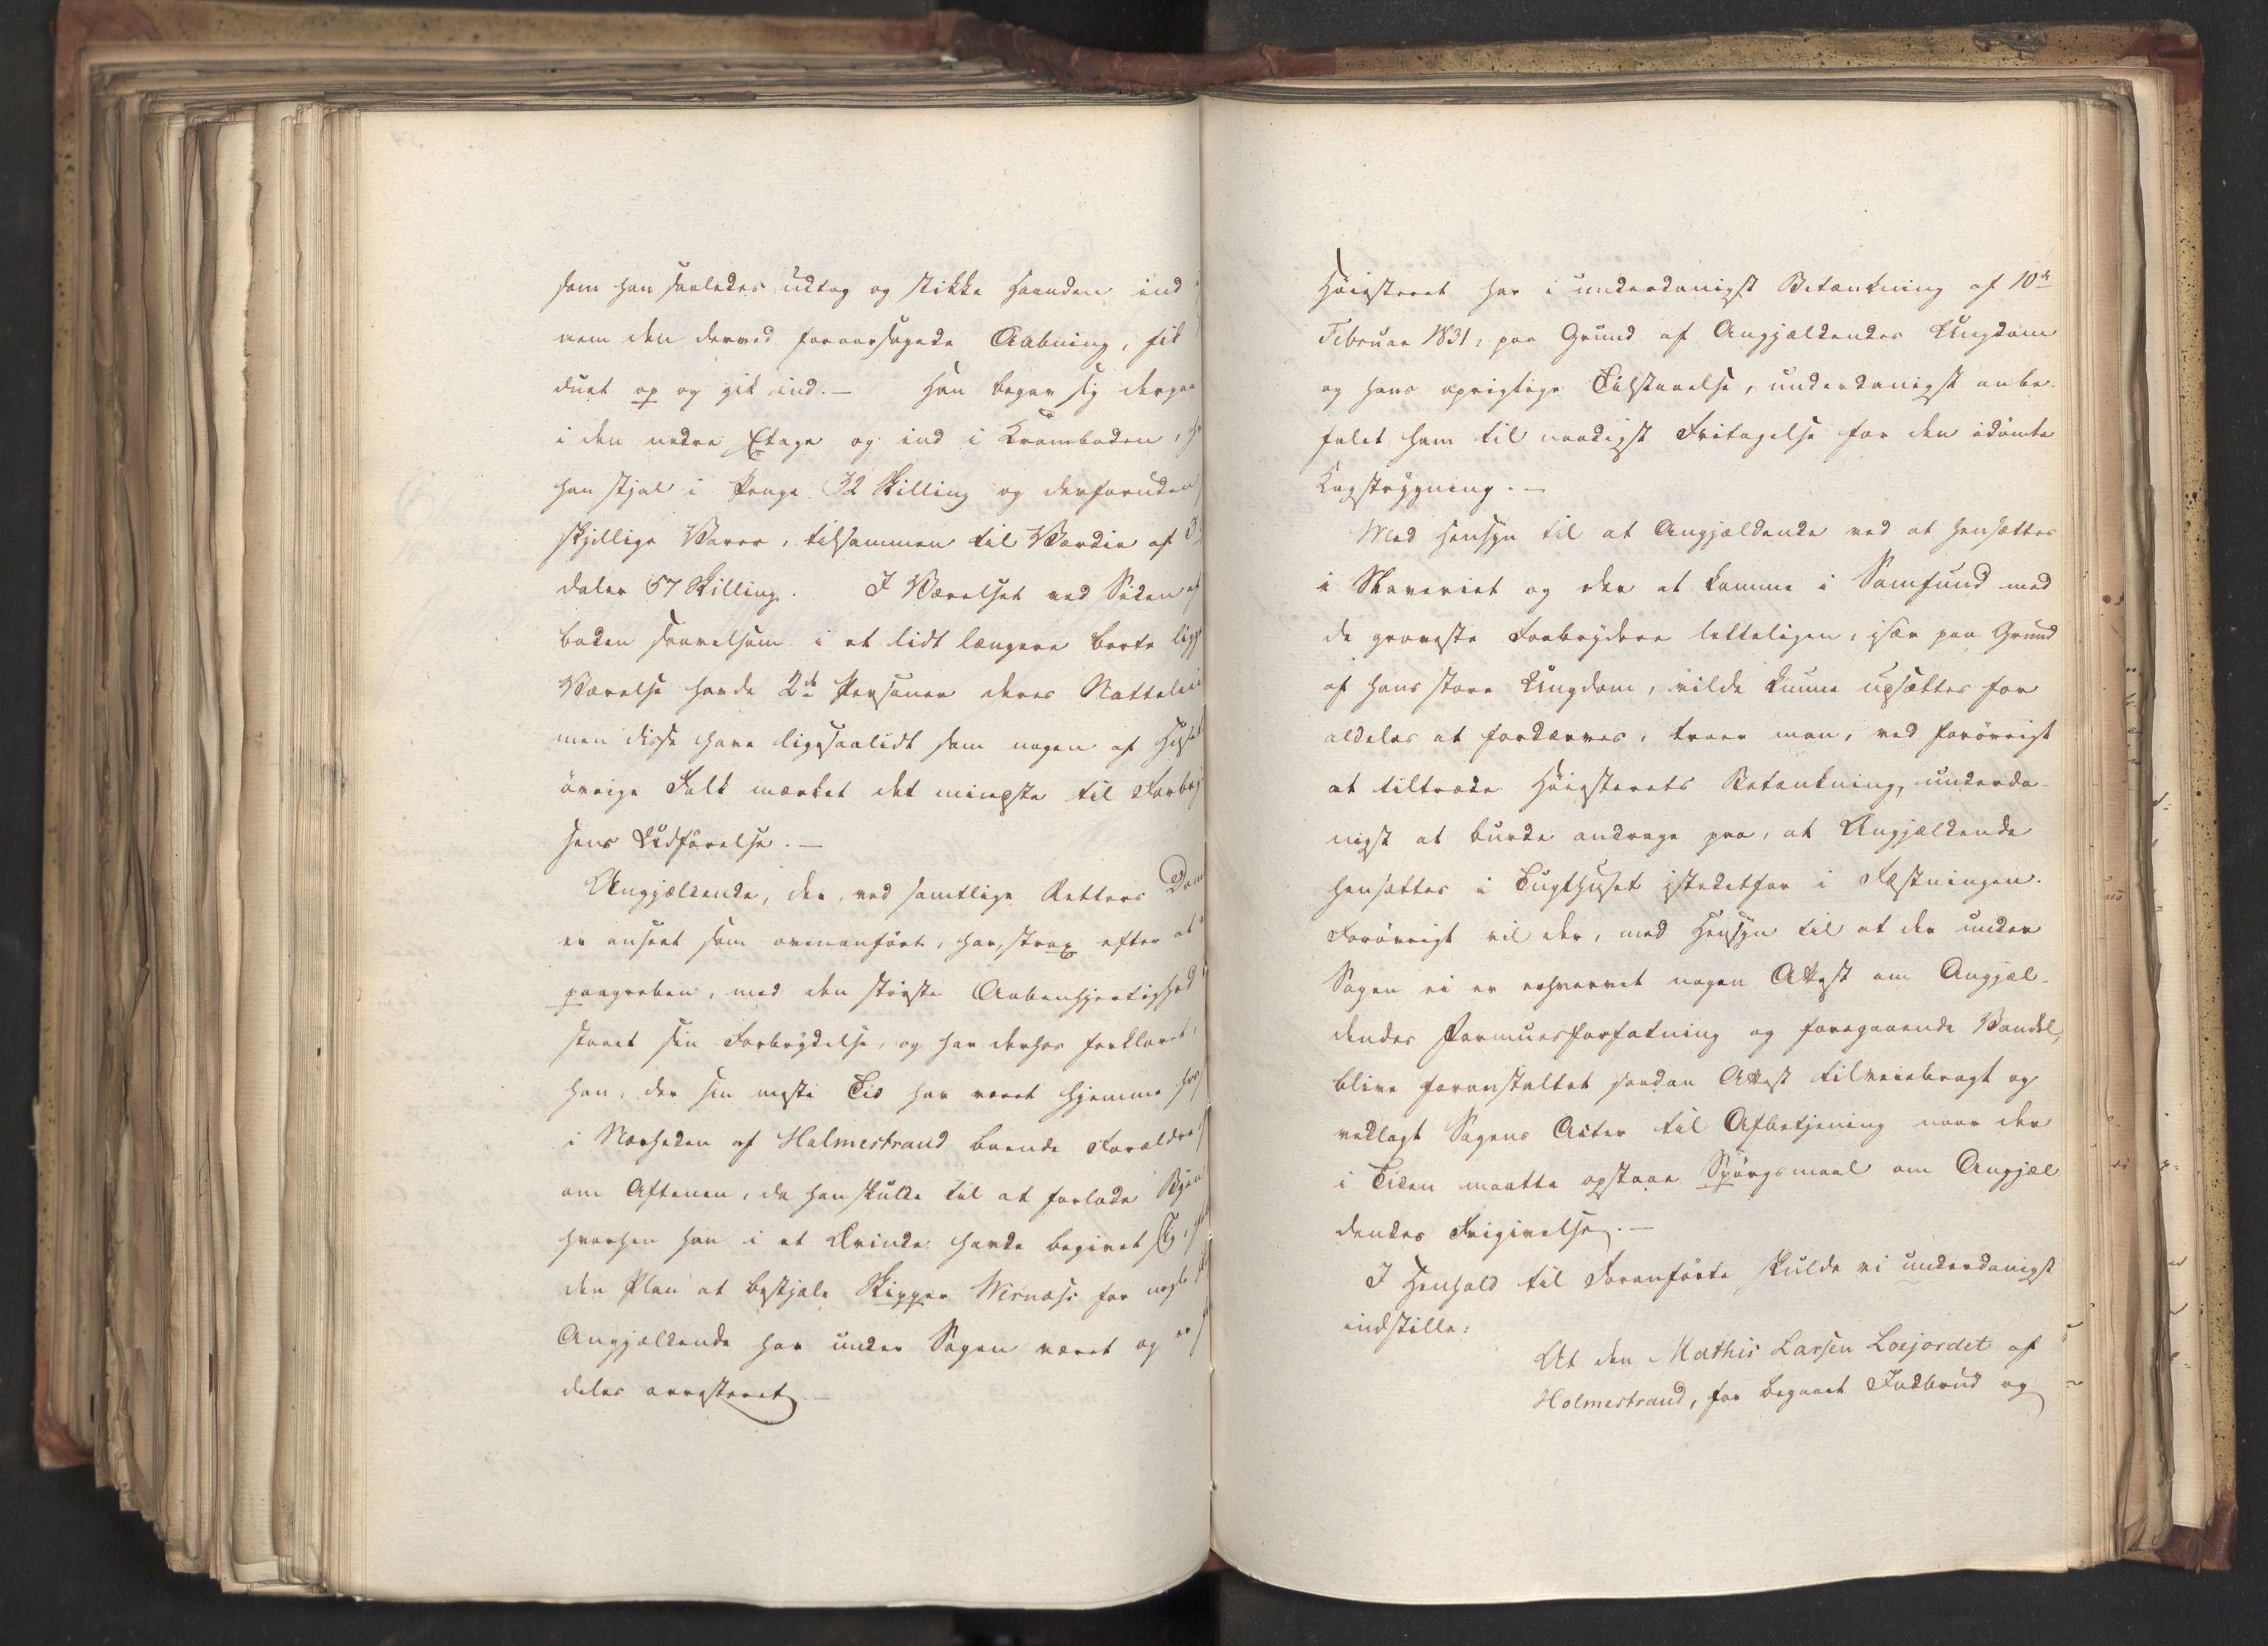 som han saaledes udtog og stikke Haanden ind
nem den derved foraarsagede Aabning, fik
duet op og gik ind. — Han begav sig derpaa
i den nedre Etage og ind i Kramboden,
han stjal i Penge 32 Skilling og desforuden
skjellige Varer, tilsammen til Værdie af 3
daler 57 Skilling. I Værelset ved Siden af
boden saavelsom i et lidt længere borte
Værelse havde 2de Personer deres Natteleie
men disse have ligesaalidt som nogen af Huset
øvrige Folk mærket det mindste til Forbry
sens Udførelse. —
Angjældende, der, ved samtlige Retters Dom
er anseet som ovenanført, har, strax efter at
paagreben, med den største Aabenhjertighed
staaet sin Forbrydelse, og har derhos forklaret,
han, der sin meste Tid har været hjemme hos
i Nærheden af Holmestrand boende Forældre,
om Aftenen, da han skulde til at forlade Byen
hvorhen han i et Ærinde havde begivet sig,
den Plan at bestjæle Skipper Wernæss for nogle
Angjældende har under Sagen været og er
deles arresteret. —
Høiesteret har i underdanigst Betænkning af 10de
Februar 1831, paa Grund af Angjældendes Ungdom
og hans oprigtige Tilstaaelse, underdanigst anbe-
falet ham til naadigst Fritagelse for den idømte
Kagstrygning. —
Med Hensyn til at Angjældende ved at hensættes
i Slaveriet og der at komme i Samfund med
de groveste Forbrydere letteligen, især paa Grund
af hans store Ungdom, vilde kunne udsættes for
aldeles at fordærves, troer man, ved forøvrigt
at tiltræde Høiesterets Betænkning, underda-
nigst at burde andrage paa, at Angjældende
hensættes i Tugthuset istedetfor i Fæstningen.
Forøvrigt vil der, med Hensyn til at der under
Sagen ei er erhvervet nogen Attest om Angjæl-
dendes Formuesforfatning og foregaaende Vandel,
blive foranstaltet saadan Attest tilveiebragt og
vedlagt Sagens Acter til Afbetjening naar der
i Tiden maatte opstaae Spørgsmaal om Angjæl
dendes Frigivelse. —
I Henhold til Foranførte skulde vi underdanigst
indstille:
At den Mathis Larsen Løejordet af
Holmestrand, for begaaet Indbrud og